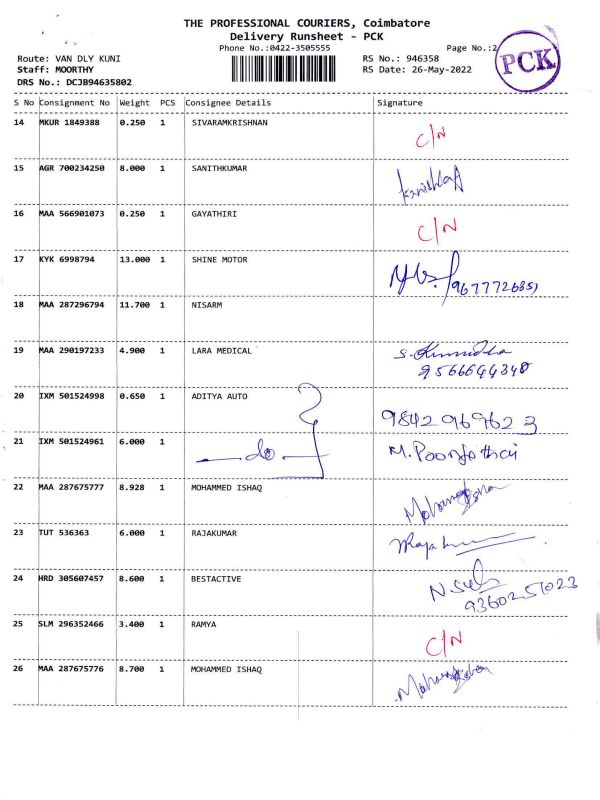 THE PROFESSIONAL COURIERS, Coimbatore
Delivery Runsheet - PCK
Phone No.:0422-3505555 Page No.:2
PCK
Route: VAN DLY KUNI RS No.: 946358
Staff: MOORTHY RS Date: 26-May-2022
DRS No.: DCJB94635802
S No Consignment No Weight PCS Consignee Details Signature
14 MKUR 1849388 0.250 1 SIVARAMKRISHNAN C/N
15 AGR 700234250 8.000 1 SANITHKUMAR
16 MAA 566901073 0.250 1 GAYATHIRI C/N
17 KYK 6998794 13.000 1 SHINE MOTOR
18 MAA 287296794 11.700 1 NISARM
19 MAA 290197233 4.900 1 LARA MEDICAL S. Kumudha
9566644340
20 IXM 501524998 0.650 1 ADITYA AUTO 9842969623
21 IXM 501524961 6.000 1 do M. Poonkothai
22 MAA 287675777 8.928 1 MOHAMMED ISHAQ
23 TUT 536363 6.000 1 RAJAKUMAR
24 HRD 305607457 8.600 1 BESTACTIVE
9360251023
25 SLM 296352466 3.400 1 RAMYA C/N
26 MAA 287675776 8.700 1 MOHAMMED ISHAQ